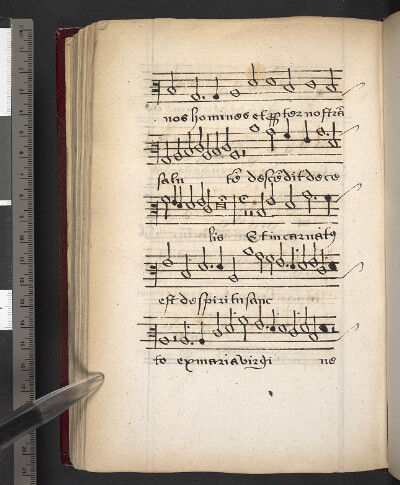 nos homines et ꝓpter nostrā
salu tē descēdit de ce
lis Et incarnatꝰ
est de spiritu sanc
to ex maria virgi ne